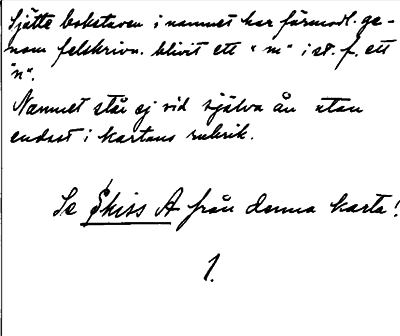 Sjätte bokstaven i namnet har förmodl. ge-
nom felskrivn. blivit ett "m" i st. f. ett
"n".
Namnet står ej vid själva ån utan
endast i kartans rubrik.
Se Skiss A från denna karta!
1.